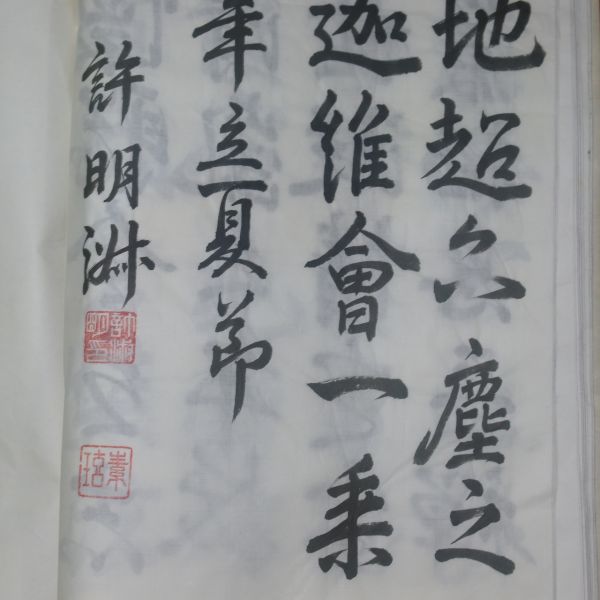 地超六塵之
迦維會一乘
年立夏節
許明淑